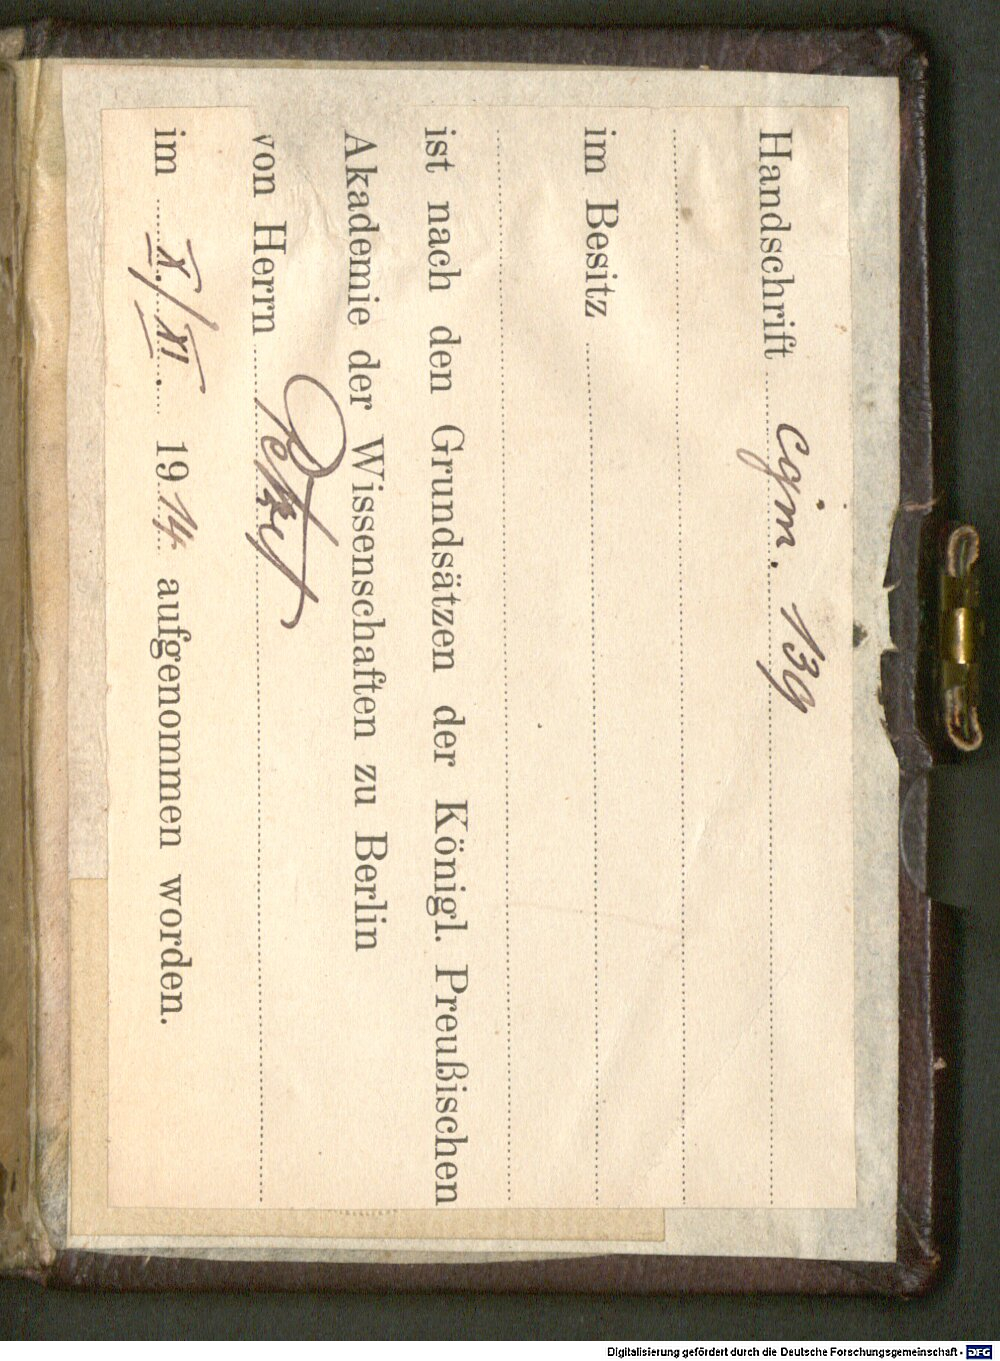 Handschrift cgm. 139
im Besitz
ist nach den Grundsätzen der Königl. Preußischen
Akademie der Wissenschaften zu Berlin
von Herrn Petzet
im X./XI. 1914 aufgenommen worden.
Digitalisierung gefördert durch die Deutsche Forschungsgemeinschaft - DFG